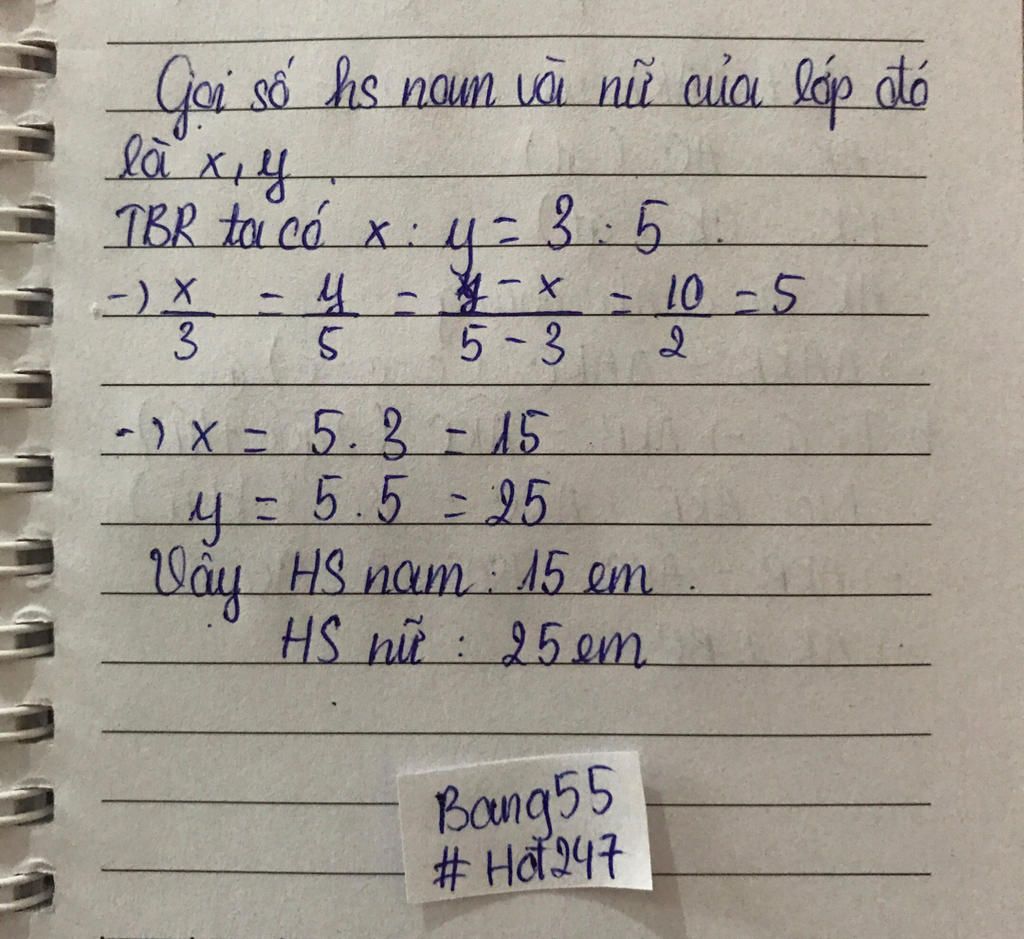 Gọi số hs nam và nữ của lớp đó
là x, y.
TBR ta có x : y = 3 : 5
-) x/3 = y/5 = y - x/5 - 3 = 10/2 = 5
-) x = 5 . 3 = 15
y = 5 . 5 = 25
Vậy HS nam : 15 em.
HS nữ : 25 em
Bang55
# Hot247